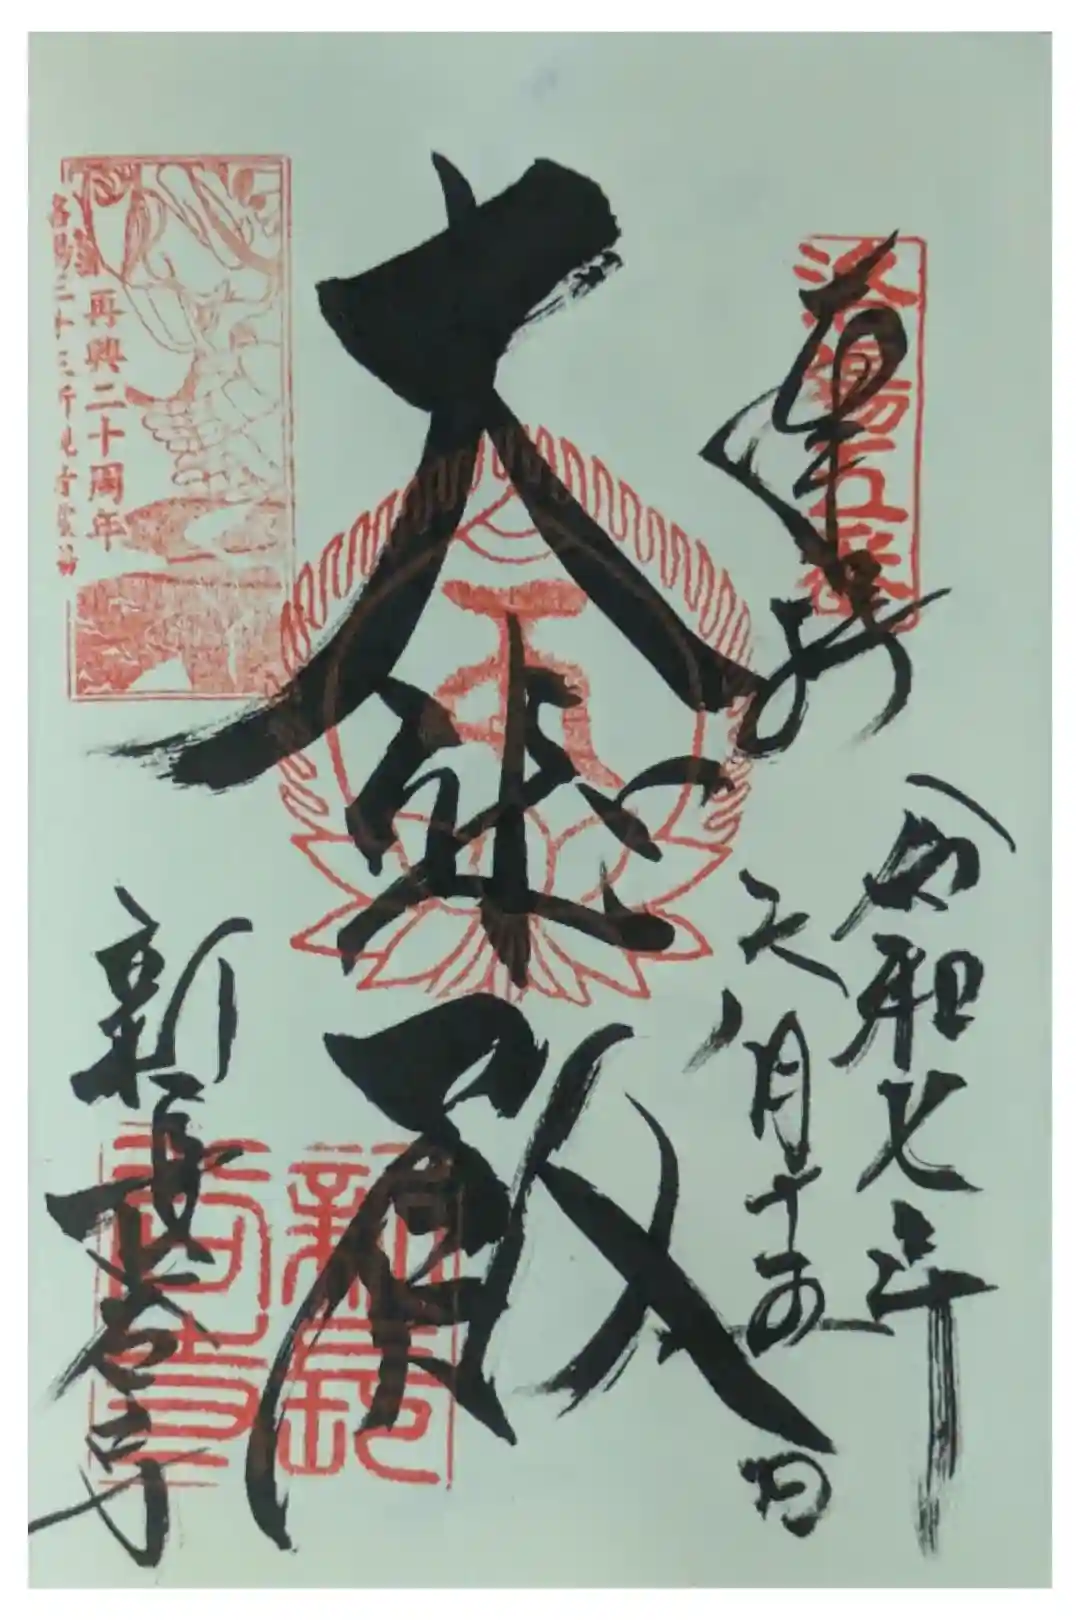 洛陽五番
奉拝
令和七年
六月十五日
大悲殿
再興二十周年
洛陽三十三所観音霊場
新長谷寺
新長谷寺